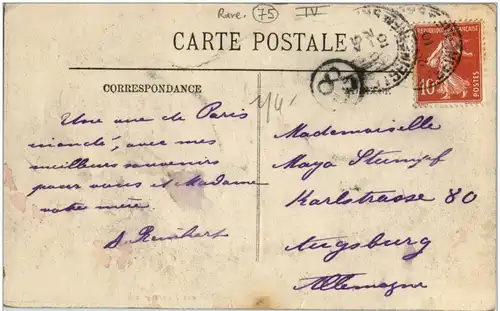 Rare. 75 IV
CARTE POSTALE
REPUBLIQUE FRANÇAISE
10
POSTES
CORRESPONDANCE
1/4
Une vue de Paris
inondé, avec mes
meilleurs souvenirs
pour vous et Madame
votre mère.
Mademoiselle
Maya Stumpf
Karlstrasse 80
Augsburg
Allemagne